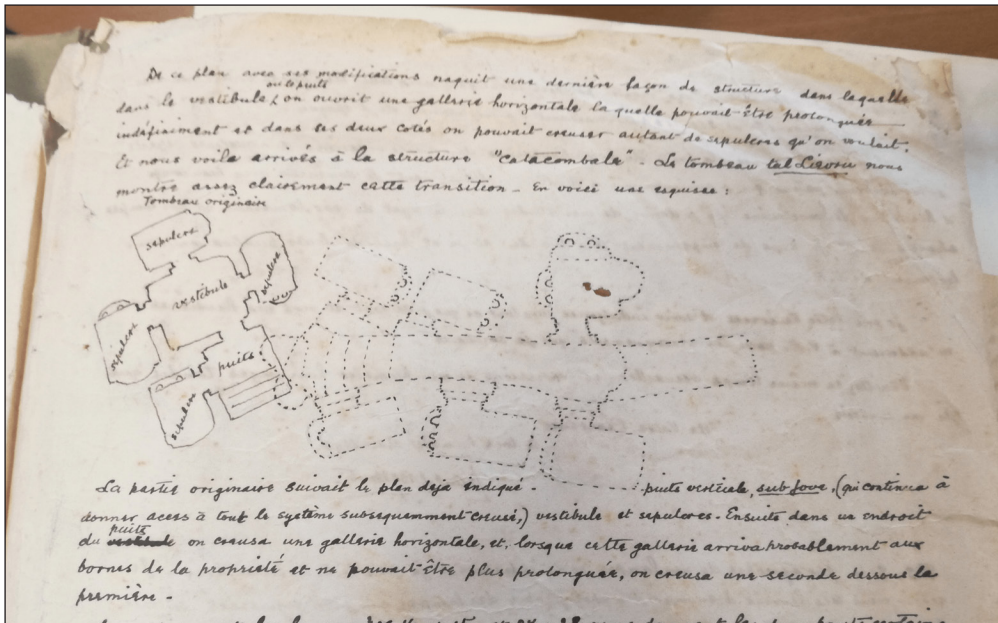 De ce plan avec ses modifications naquit une dernière façon de structure dans laquelle
ou le puits
dans le vestibule, on ouvrit une gallerie horizontale la quelle pouvait-être prolonguée
indéfiniment et dans ses deux cotés on pouvait creuser autant de sepulcres qu'on voulait.
Et nous voila arrivés à la structure "catacombale" - Le tombeau tal Liebru nous
montre assez clairement cette transition - En voici une esquisse :
Tombeau originaire
sepulcre
vestibule
sepulcre
sepulcre
puits
sepulcre
La partie originaire suivait le plan deja indiqué - puits verticale, sub Jove, (qui continua à
donner acess à tout le système subsequemment creusé,) vestibule et sepulcres - Ensuite dans un endroit
puits
du vestibule on creusa une gallerie horizontale, et, lorsque cette gallerie arriva probablement aux
bornes de la propriété et ne pouvait-être plus prolonguée, on creusa une seconde dessous la
première -